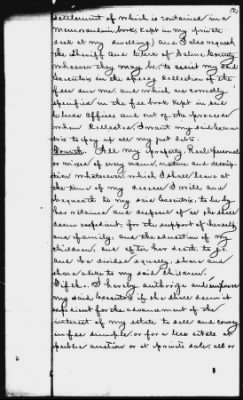 (2)
settlement of which is contained in a
memorandum book, kept in my private
desk at my dwelling, and I also request
the Sheriff and Clerk of Saline County
whoever they may be to assist my said
Executrix in the speedy collection of the
fees due me and which are correctly
specified in the fee book kept in said
Clerks Office and out of the proceeds
when collected, I want my said Execu-
trix to pay up all my just debts.
Fourth. All my property, Real personal
or mixed of every name, nature and descrip-
tion whatsoever, which I shall leave at
the time of my decease I will and
bequeath to my said Executrix, to be by
her retained and disposed of as she shall
deem expedient, for the support of herself
and family, and the education of my
children, and after her death to go
and be divided equally, share and
share alike to my said Children.
Fifth. I hereby authorize and empower
my said Executrix if she shall deem it
expedient for the advancement of the
interest of my estate to sell and convey
in fee simple or for a less estate at
public auction or at private sale, all or